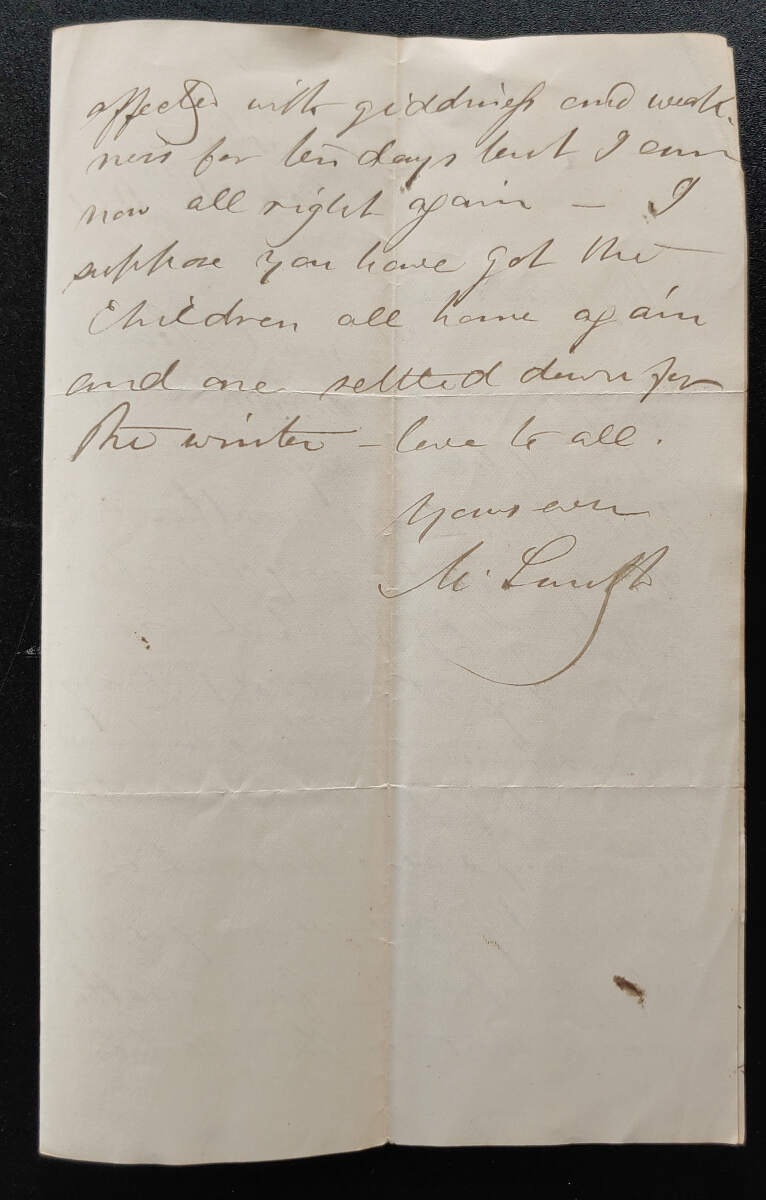 affected with giddiness and weak-
ness for ten days but I am
now all right again – I
suppose you have got the
Children all home again
and are settled down for
the winter – love to all.
Yours ever
M.